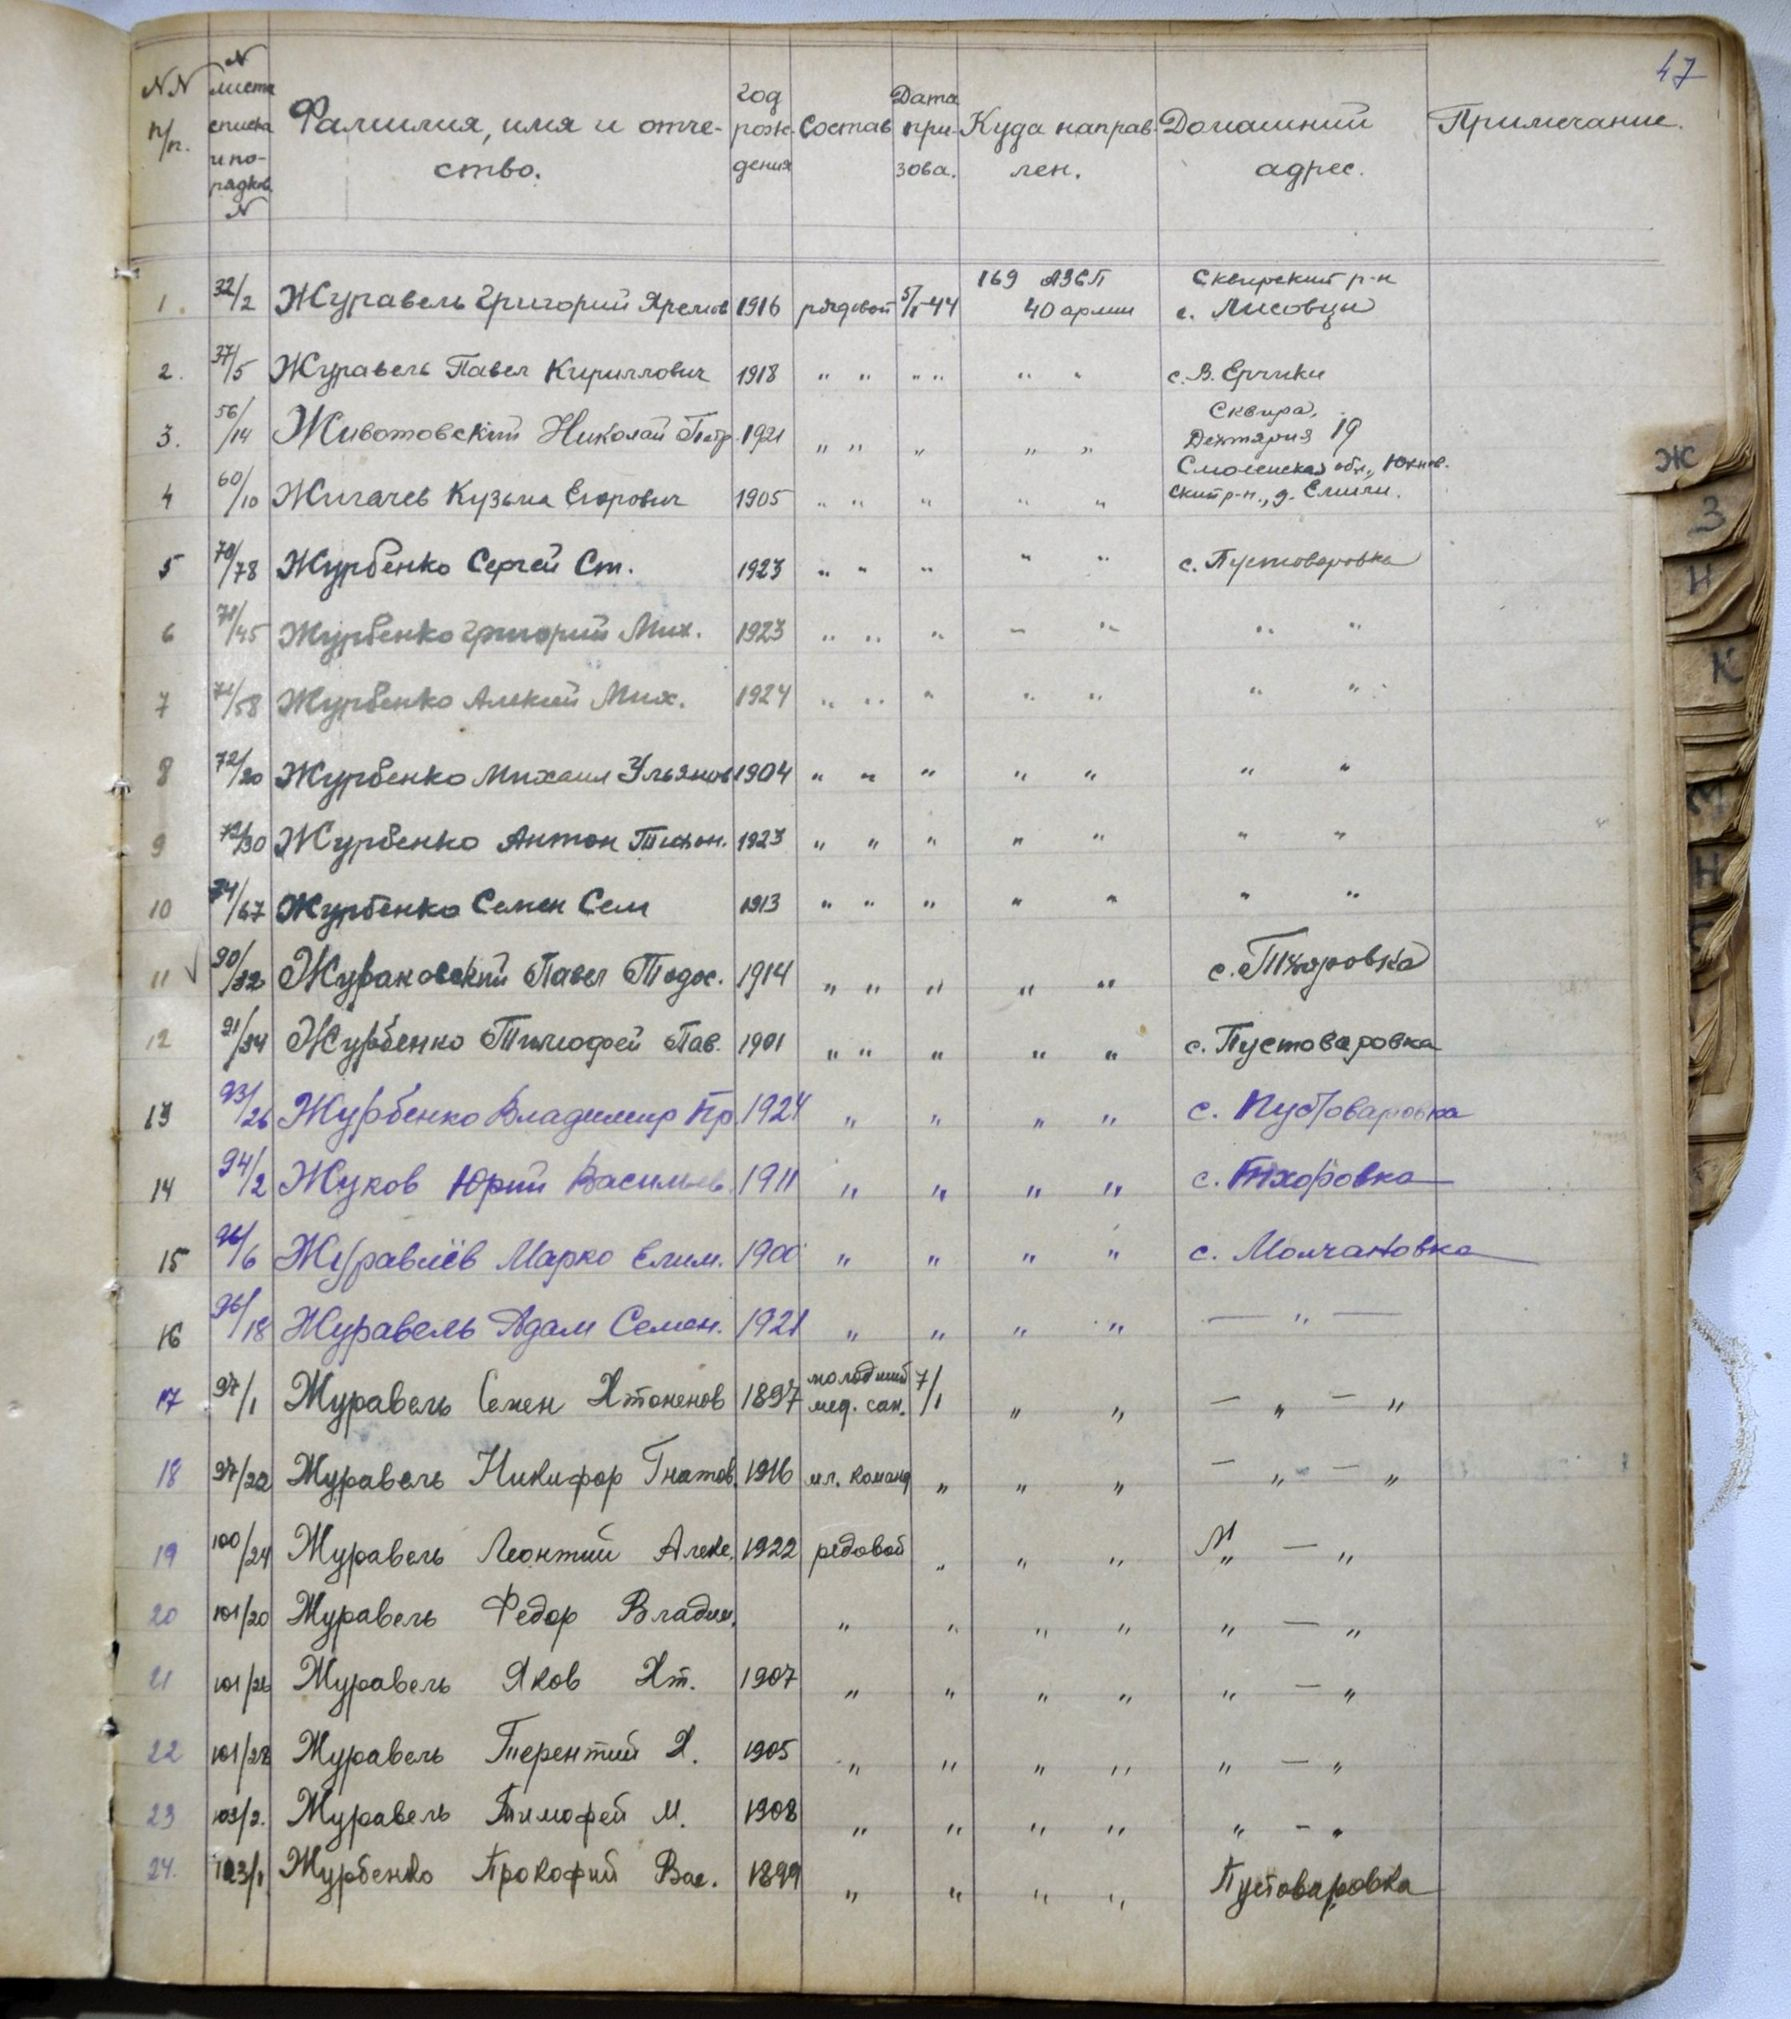 47
NN п/п. | N листа списка и порядков. N | Фамилия, имя и отчество. | Год рождения | Состав | Дата призова. | Куда направлен. | Домашний адрес. | Примечание.
1. 32/2 Журавель Григорий Яремов 1916 рядовой 5/I-44 169 АЗСП 40 армии Сквирский р-н с. Лисовцы
2. 37/5 Журавель Павел Кириллович 1918 " " " " " " с. В. Ерчики
3. 56/14 Животовский Николай Петр. 1921 " " " " " Сквира, 19
4 60/10 Жигачев Кузьма Егорович 1905 " " " " " Смоленская обл., Юхновский р-н., д.
5 70/78 Журбенко Сергей Ст. 1923 " " " " " с. Пустоваровка
6 71/45 Журбенко Григорий Мих. 1923 " " " " " " "
7 71/58 Журбенко Алексей Мих. 1924 " " " " " " "
8 72/20 Журбенко Михаил Ульянов 1904 " " " " " " "
9 72/30 Журбенко Антон Тихон. 1923 " " " " " " "
10 74/67 Журбенко Семен Сем 1913 " " " " " " "
11 √ 90/32 Жураковский Павел Тодос. 1914 " " " " " с. Тхоровка
12 91/34 Журбенко Тимофей Пав. 1901 " " " " " с. Пустоваровка
13 93/26 Журбенко Владимир Пр. 1924 " " " " с. Пустоваровка
14 94/2 Жуков Юрий Васильев. 1911 " " " " с. Тхоровка
15 96/6 Журавлёв Марко Елим. 1900 " " " " с. Молчановка
16 96/18 Журавель Адам Семен. 1921 " " " " — " —
17 97/1 Журавель Семен Хтоненов 1897 молодший мед. сан. 7/I " " — " — "
18 97/22 Журавель Никифор Гнатов. 1916 мл. команд " " " — " — "
19 100/24 Журавель Леонтий Алекс. 1922 редовой " " " " — "
20 101/20 Журавель Федор Владим. " " " " " — "
21 101/26 Журавель Яков Хт. 1907 " " " " " — "
22 101/28 Журавель Терентий Х. 1905 " " " " " — "
23 103/2. Журавель Тимофей М. 1908 " " " " " — "
24. 123/1 Журбенко Прокофий Вас. 1899 " " " " Пустоваровка
Ж
З
И
К
М
Н